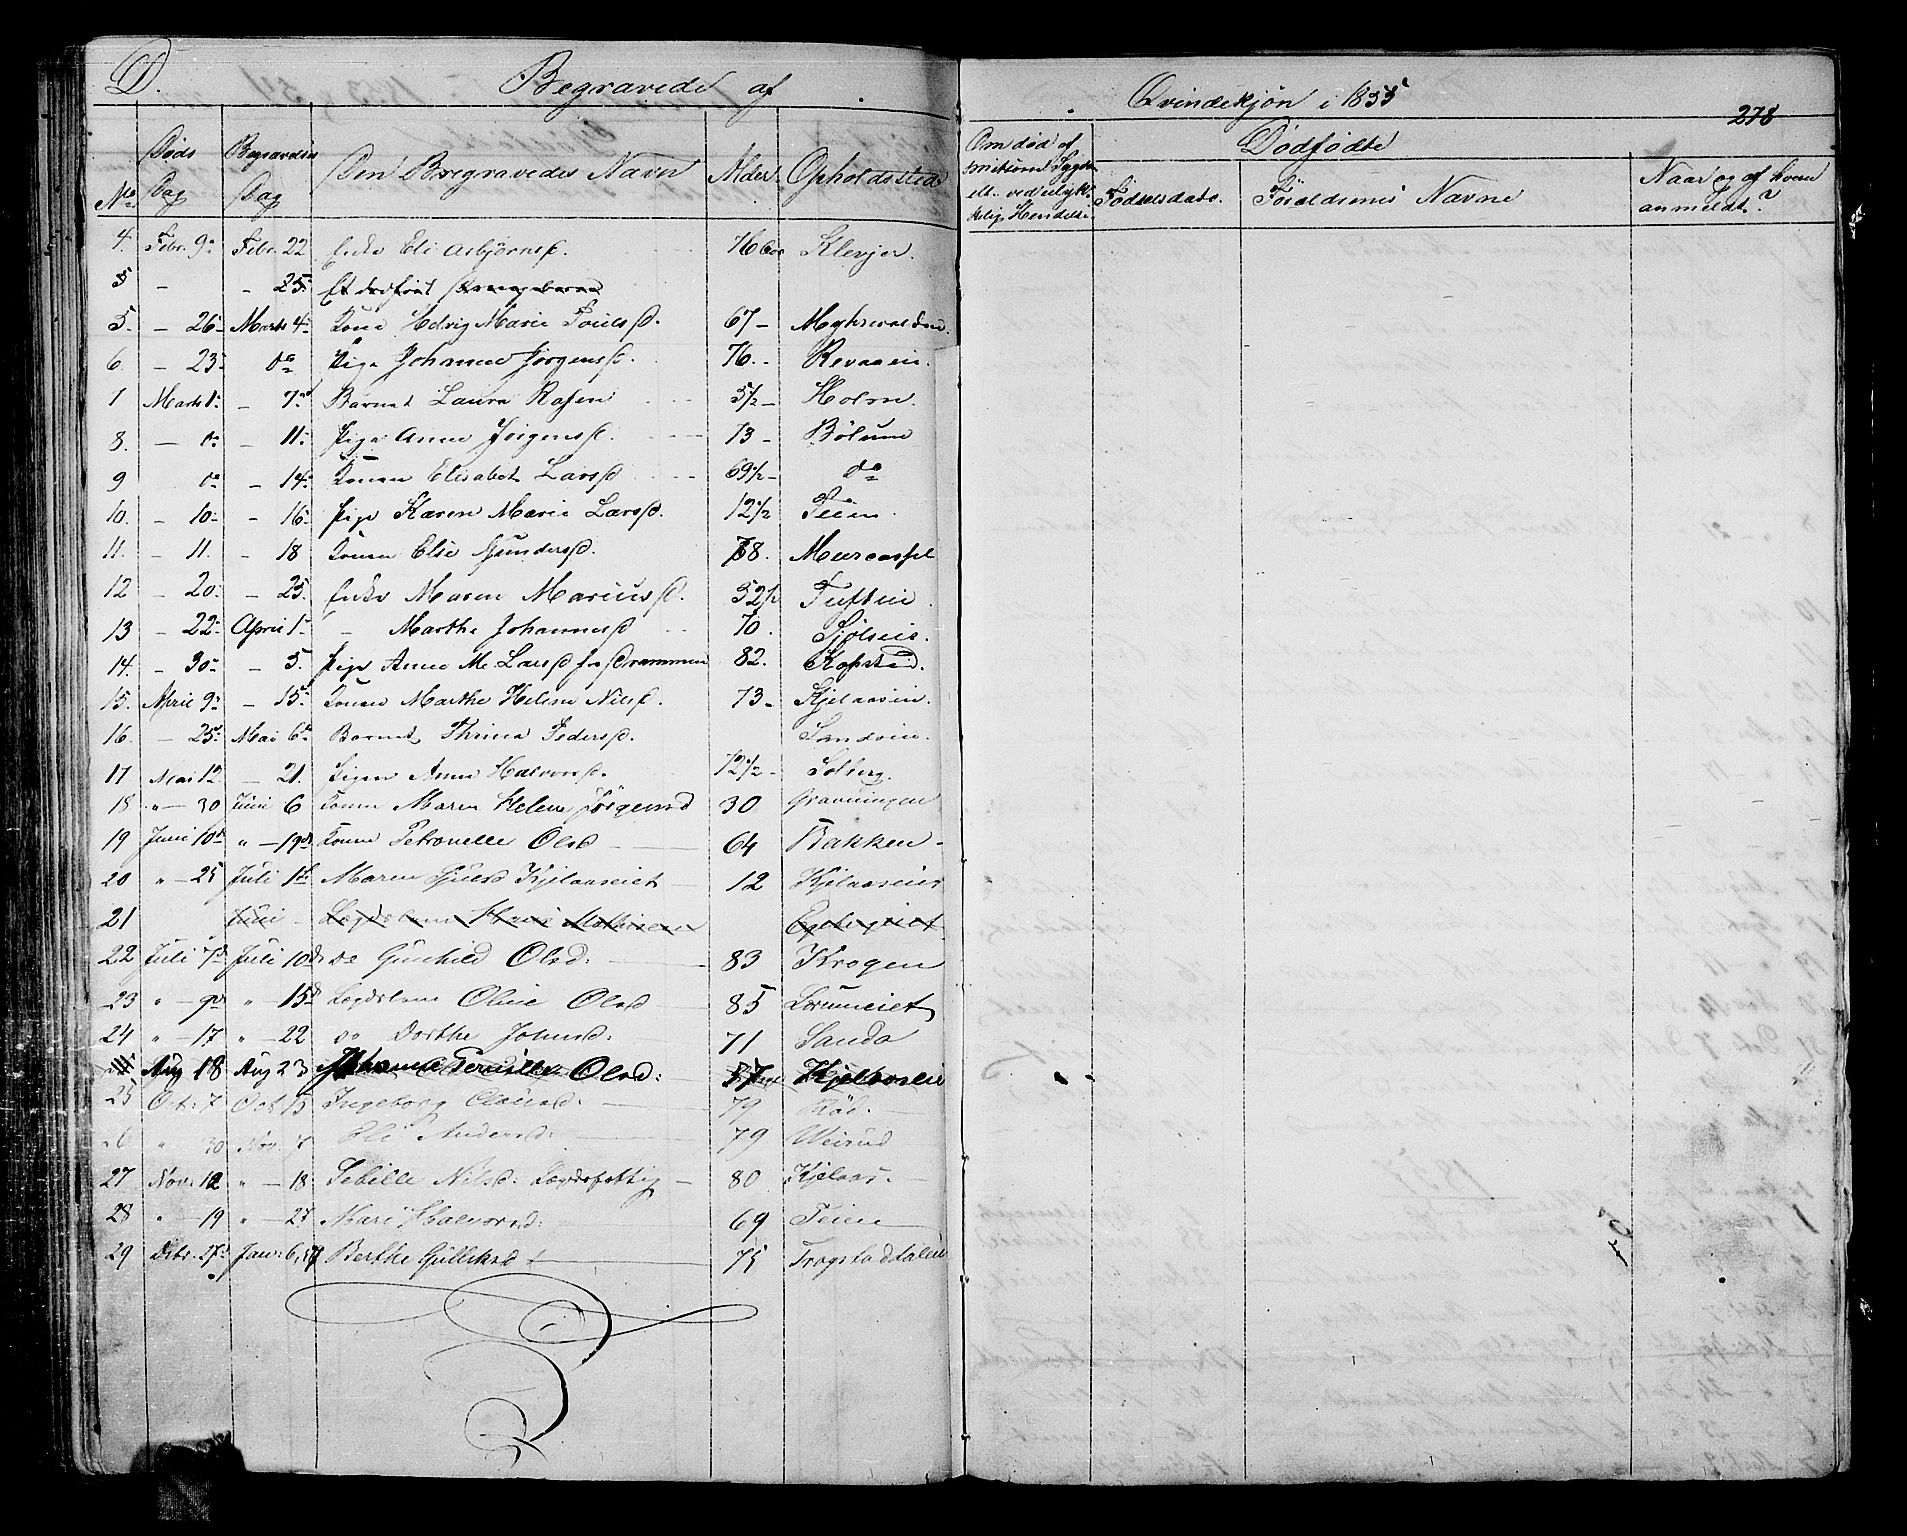 D. Begravede af Qvindekjøn i 1855
278
No Døds Dag Begravelses Dag Den Begravedes Navn Alder Opholdssted Om død af smitsom Sygdom ell. ved ulykkelig Hendelse Dødfødte
Fødselsdato. Forældrenes Navne Naar og af hvem anmeldt?
4. Febr. 9 Febr. 22 Enke Eli Asbjørnsd. 76 Klevjer.
5 - - 25 Et dødfødt
5. - 26 Marts 4 Konen Hedvig Marie Poulsd. 67 -
6. - 23 do Pige Johanne Jørgensd. 76. - Revaaen.
Marts 1 - 7 Barnet Laura 5/2 - Holm.
8. - do - 11 Pige Anne Jørgensd. 73 - Bølum
9 do - 14 Konen Elisabet Larsd 69 1/2 - do
10. - 10 - 16 Pige Karen Marie Larsd. 12 1/2 Teien.
11. - 11. - 18 Konen Else Gundersd. 78.
12 - 20. - 25. Enke Maren Mariusd. 52 1/2 Tuften.
13 - 22 April 1 - Marthe Johannesd 70.
14. - 30 - 5. Pige Anne M. Larsd fra Drammen 82. Kopstad.
15. April 9 - 15 Konen Marthe Helene Nilsd. 73 - Kjelaasein.
16. - 25 Mai 6 Barnet Thrina Pedersd. Sandvin.
17 Mai 12 - 21. Pigen Anne Halvorsd. 12 1/2 Solberg.
18 " - 30 Juni 6 Konen Maren Helene Jørgensd 30 Gravningen
19 Juni 10d " - 19d Konen Petronelle Olsd 64 Bakken -
20 " - 25 Juli 1st Maren Juelsd Kjelaaseiet 12 Kjelaaseiet
21 Juni Lægdslem
22 Juli 7d Juli 10d do Gunhild Olsd: 83 Krogen
23 " - 9d " - 15d Lægdslem Oline Olsd 85
24 " - 17 " - 22 do Dorthe Johnsd: 71 Sanda
Aug 18 Aug 23 Johanne Pernille Olsd: 57 Kjelaaseie
25 Oct: 7 Oct 15 Ingeborg Clausd: 79 Röd -
26 " 30 Nov. 7 Eli Andersd: 79 Weisud
27 Nov: 12 " - 18. Sebille Nilsd: Lægdsfattig - 80 Kjelaas -
28 " - 19 " - 27 Mari Halvorsd: 69 Teien
29 Dcbr. 27d Janr: 6, Berthe Gulliksd 75 Trogstadtaleie